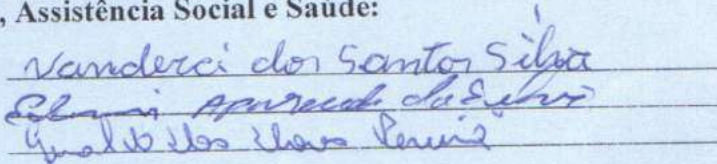 , Assistência Social e Saúde:
Vanderci dos Santos Silva
Aparecida da Silva
Pereira